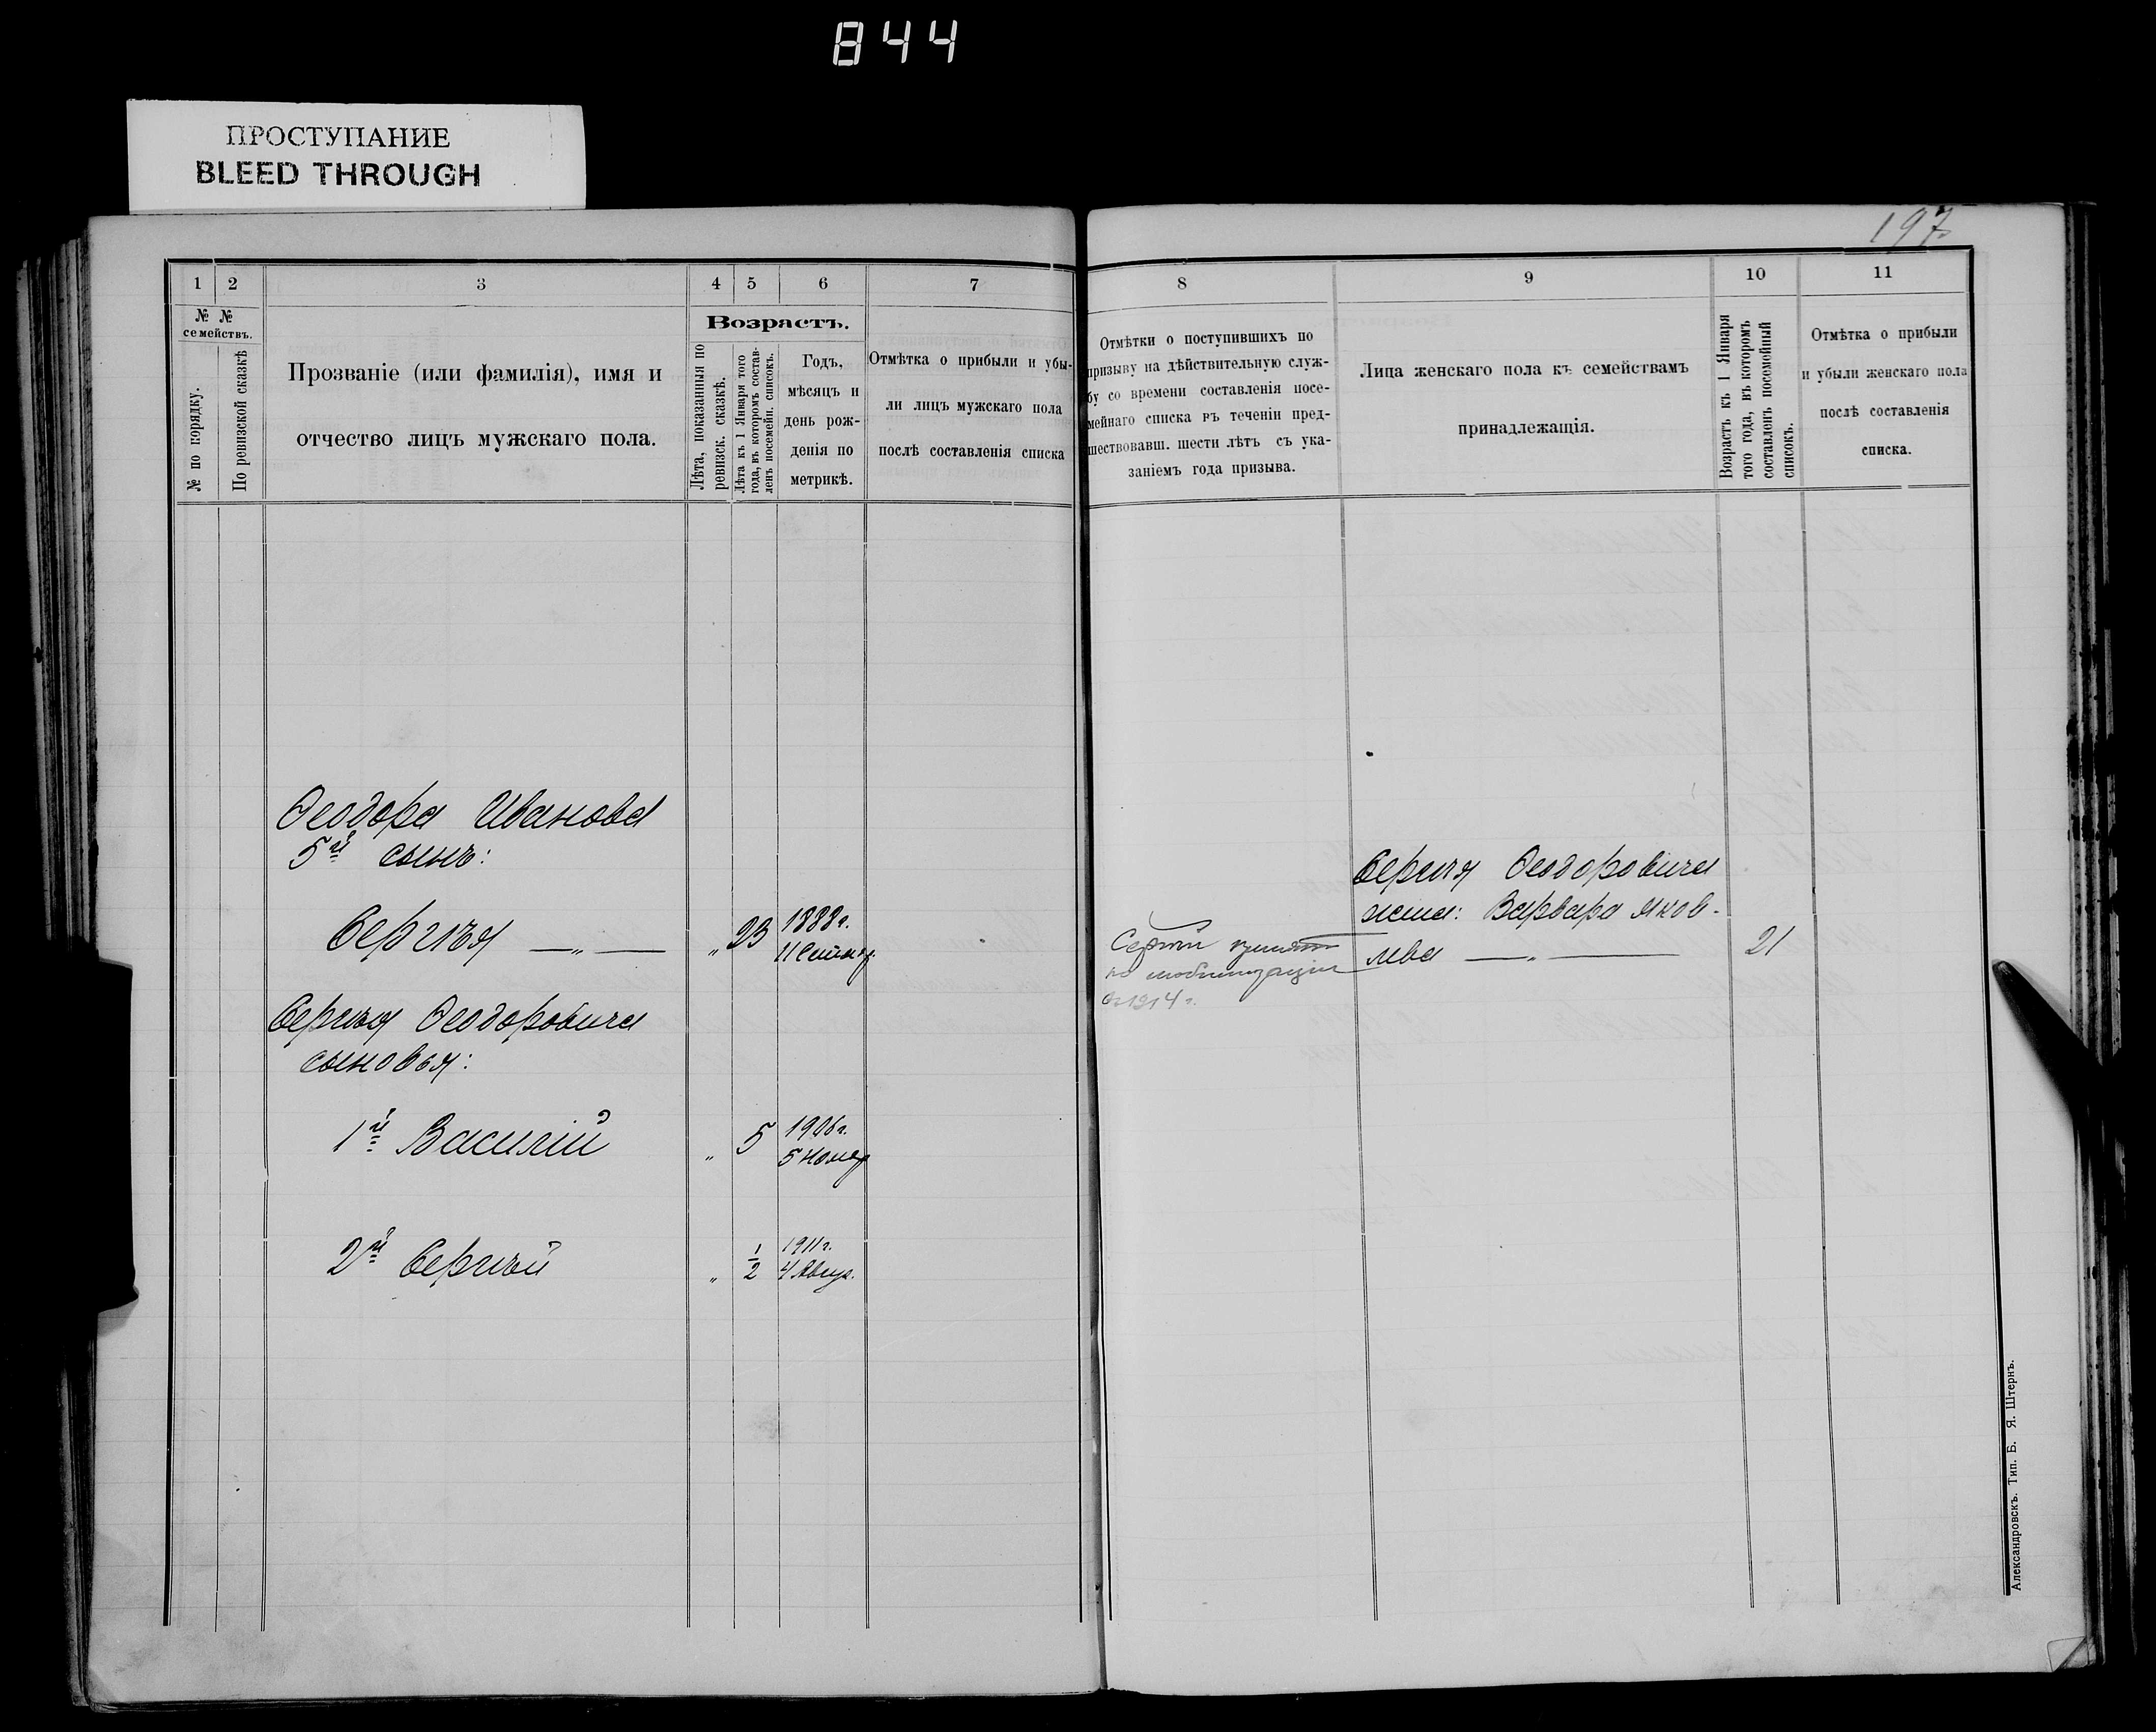 844
ПРОСТУПАНИЕ
BLEED THROUGH
197
1 2 3 4 5 6 7
№ № семействъ.
№ по порядку.
По ревизской сказкѣ
Прозваніе (или фамилія), имя и
отчество лицъ мужскаго пола.
Возрастъ.
Лѣта, показанныя по
ревизск. сказкѣ.
Лѣта къ 1 Января того
года, въ которомъ состав-
ленъ посемейн. списокъ.
Годъ,
мѣсяцъ и
день рож-
денія по
метрикѣ.
Отмѣтка о прибыли и убы-
ли лицъ мужскаго пола
послѣ составленія списка
Ѳеодора Иванова
5й сынъ:
Сергѣя — „ — „ 23 1888 г.
11 Сентяб.
Сергѣя Ѳеодоровича
сыновья:
1й Василій „ 5 1906 г.
5 Нояб.
2й Сергѣй „ 1/2 1911 г.
4 Авгус.
8 9 10 11
Отмѣтки о поступившихъ по
призыву на дѣйствительную служ-
бу со времени составленія посе-
мейнаго списка въ теченіи пред-
шествовавш. шести лѣтъ съ ука-
заніемъ года призыва.
Лица женскаго пола къ семействамъ
принадлежащія.
Возрастъ къ 1 Января
того года, въ которомъ
составленъ посемейный
списокъ.
Отмѣтка о прибыли
и убыли женскаго пола
послѣ составленія
списка.
Сергѣя Ѳеодоровича
жена: Варвара Яков-
лева — „ — 21
Сергѣй
по мобилизаціи
въ 1914 г.
Александровскъ. Тип. Б. Я. Штернъ.